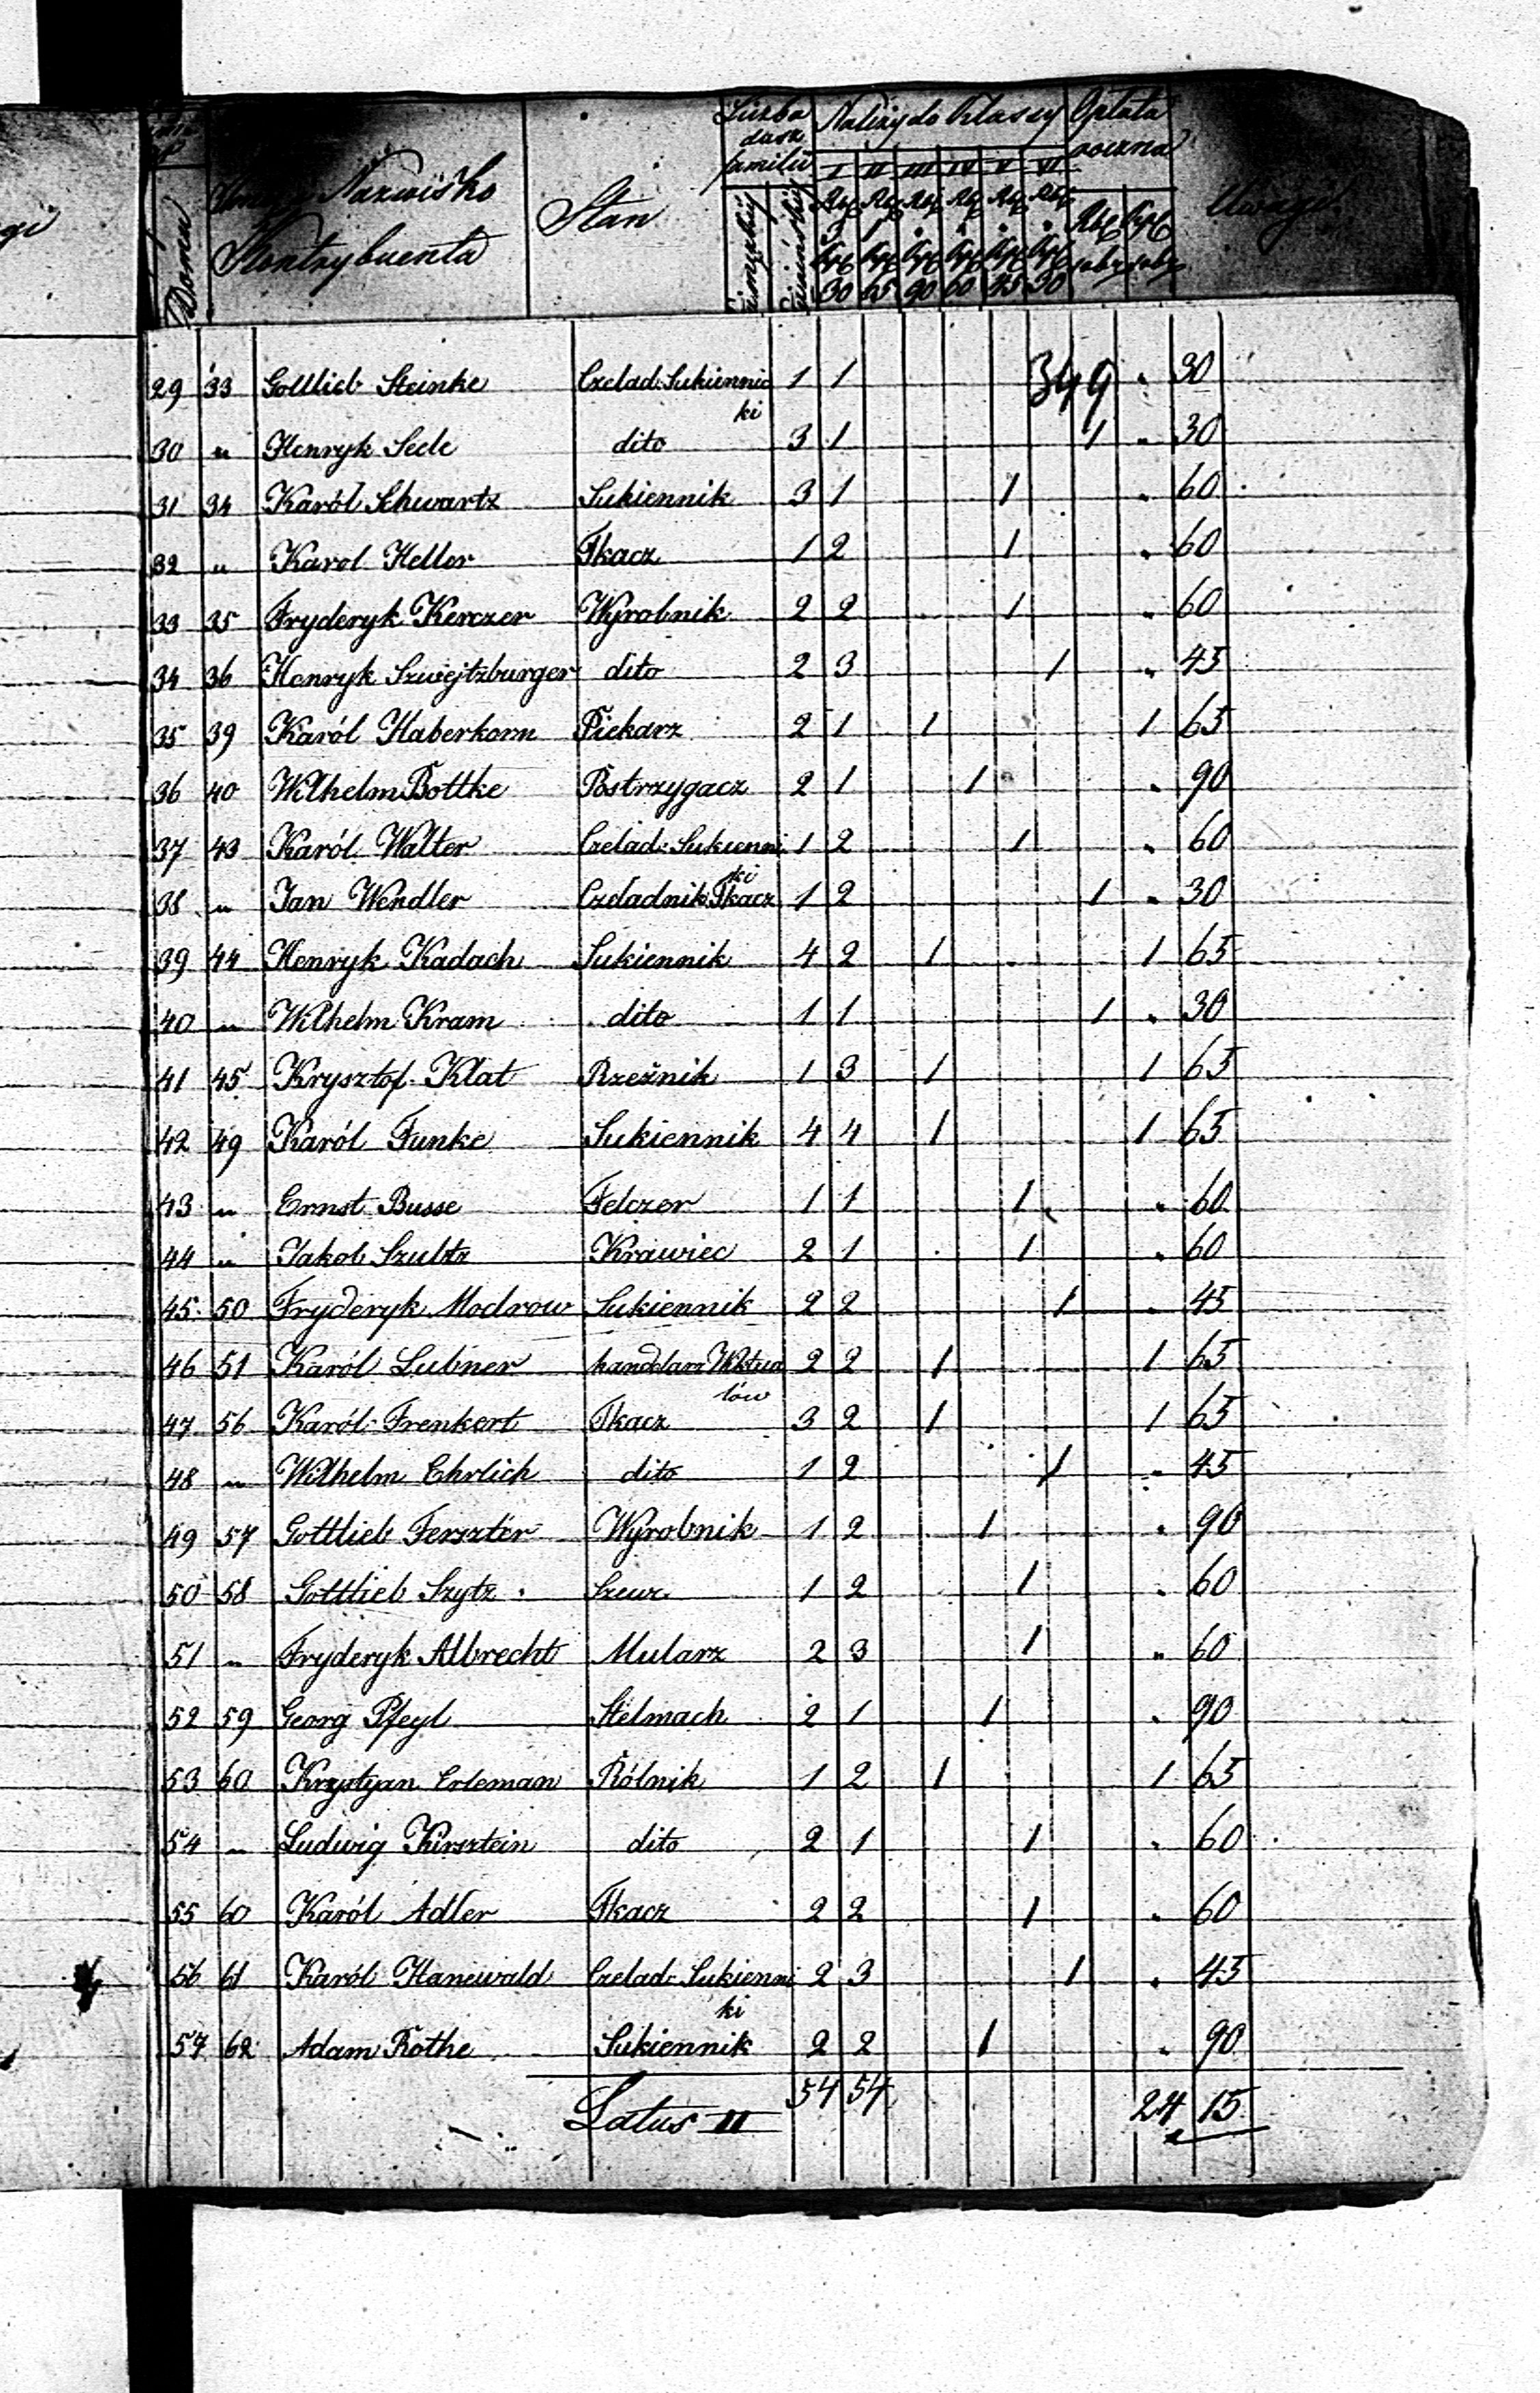 Liczba dusz familii
Należy do Klassy
Opłata roczna
Nazwisko
Kontrybuenta
Stan
Uwagi
Domu
I II III IV V VI
30 65 90 60 45 30
349
29 33 Gottlieb Steinke Czelad: Sukiennic 1 1 " 30
ki
30 " Henryk Seele dito 3 1 1 " 30
31 34 Karól Schwartz Sukiennik 3 1 1 " 60
32 " Karol Heller Tkacz 1 2 1 " 60
33 35 Fryderyk Kerczer Wyrobnik 2 2 1 " 60
34 36 Henryk Szwejtzburger dito 2 3 1 " 45
35 39 Karól Haberkorn Piekarz 2 1 1 1 65
36 40 Wilhelm Bottke Postrzygacz 2 1 1 " 90
37 43 Karól Walter Czelad: Sukienni 1 2 1 " 60
ki
38 " Jan Wendler Czeladnik Tkacz 1 2 1 " 30
39 44 Henryk Kadach Sukiennik 4 2 1 1 65
40 " Wilhelm Kram dito 1 1 1 " 30
41 45 Krysztof Klat Rzeźnik 1 3 1 1 65
42 49 Karól Funke Sukiennik 4 4 1 1 65
43 " Ernst Busse Felczer 1 1 1 " 60
44 " Jakob Szultz Krawiec 2 1 1 " 60
45 50 Fryderyk Modrow Sukiennik 2 2 1 " 45
46 51 Karól Lubner handlarz Wiktua 2 2 1 1 65
łów
47 56 Karól Frenkert Tkacz 3 2 1 1 65
48 " Wilhelm Ehrlich dito 1 2 1 " 45
49 57 Gottlieb Ferszter Wyrobnik 1 2 1 " 90
50 58 Gottlieb Szytz Szewc 1 2 1 " 60
51 " Fryderyk Albrecht Mularz 2 3 1 " 60
52 59 Georg Pfeyl Stelmach 2 1 1 " 90
53 60 Krystyan Erleman Rólnik 1 2 1 1 65
54 " Ludwig Kirsztein dito 2 1 1 " 60
55 60 Karól Adler Tkacz 2 2 1 " 60
56 61 Karól Hanewald Czelad: Sukienni 2 3 1 " 45
ki
57 62 Adam Rothe Sukiennik 2 2 1 " 90
Latus II 54 54 24 15